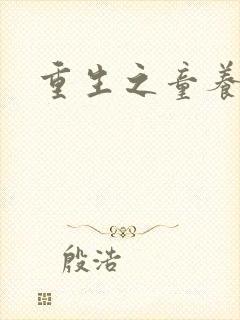 重生之童养
殷浩